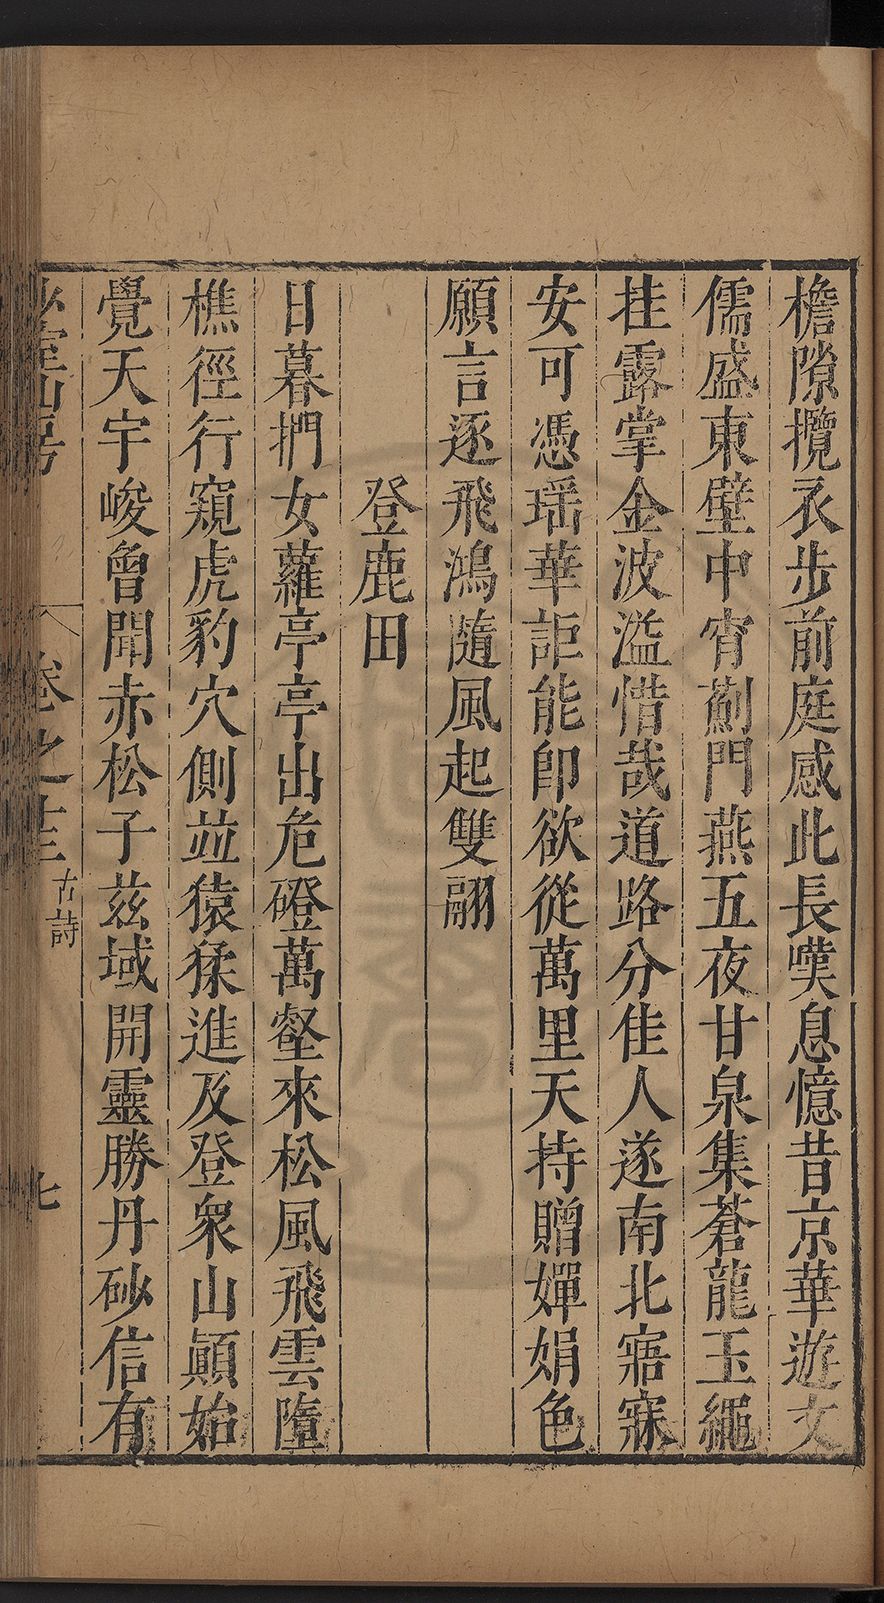 檐隙攬衣步前庭感此長嘆息憶昔京華遊文
儒盛東壁中宵薊門燕五夜甘泉集蒼龍玉繩
挂露掌金波溢惜哉道路分佳人遂南北寤寐
安可憑瑶華詎能卽欲從萬里天持贈嬋娟色
願言逐飛鴻隨風起雙翮
登鹿田
日暮捫女蘿亭亭出危磴萬壑來松風飛雲墮
樵徑行窺虎豹穴側並猿猱進及登衆山顚始
覺天宇峻曾聞赤松子茲域開靈勝丹砂信有
少室山房
卷之十三
古詩
七